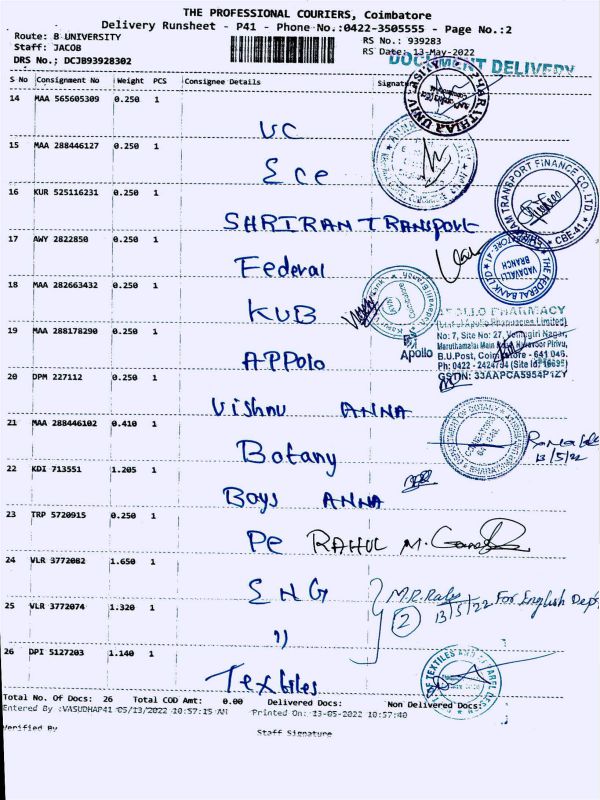 THE PROFESSIONAL COURIERS, Coimbatore
Delivery Runsheet - P41 - Phone No.:0422-3505555 - Page No.:2
Route: B UNIVERSITY
RS No.: 939283
Staff: JACOB
RS Date: 13-May-2022
DRS No.; DCJB93928302
DOCUMENT DELIVERY
S No Consignment No Weight PCS Consignee Details Signature
14 MAA 565605309 0.250 1
UC
15 MAA 288446127 0.250 1
Ece
16 KUR 525116231 0.250 1
SHRIRAM TRANSPORT
17 AWY 2822850 0.250 1
Federal
THE FEDERAL BANK LTD
VADAVALLI BRANCH
18 MAA 282663432 0.250 1
KUB
19 MAA 288178290 0.250 1
APPolo
Apollo
APOLLO PHARMACY
(Unit of Apollo Pharmacies Limited)
No: 7, Site No: 27,
B.U.Post, Coimbatore - 641 046.
20 DPM 227112 0.250 1
Vishnu ANNA
21 MAA 288446102 0.410 1
Botany
DEPARTMENT OF BOTANY
13/5/22
22 KDI 713551 1.205 1
Boys ANNA
23 TRP 5720915 0.250 1
Pe RAHUL M.
24 VLR 3772082 1.650 1
ENG
For English Dept
2 13/5/22
25 VLR 3772074 1.320 1
"
26 DPI 5127203 1.140 1
Textiles
Total No. Of Docs: 26 Total COD Amt: 0.00 Delivered Docs: Non Delivered Docs:
Entered By :VASUDHAP41 05/13/2022 10:57:15 AM Printed On: 13-05-2022 10:57:40
Verified By
Staff Signature